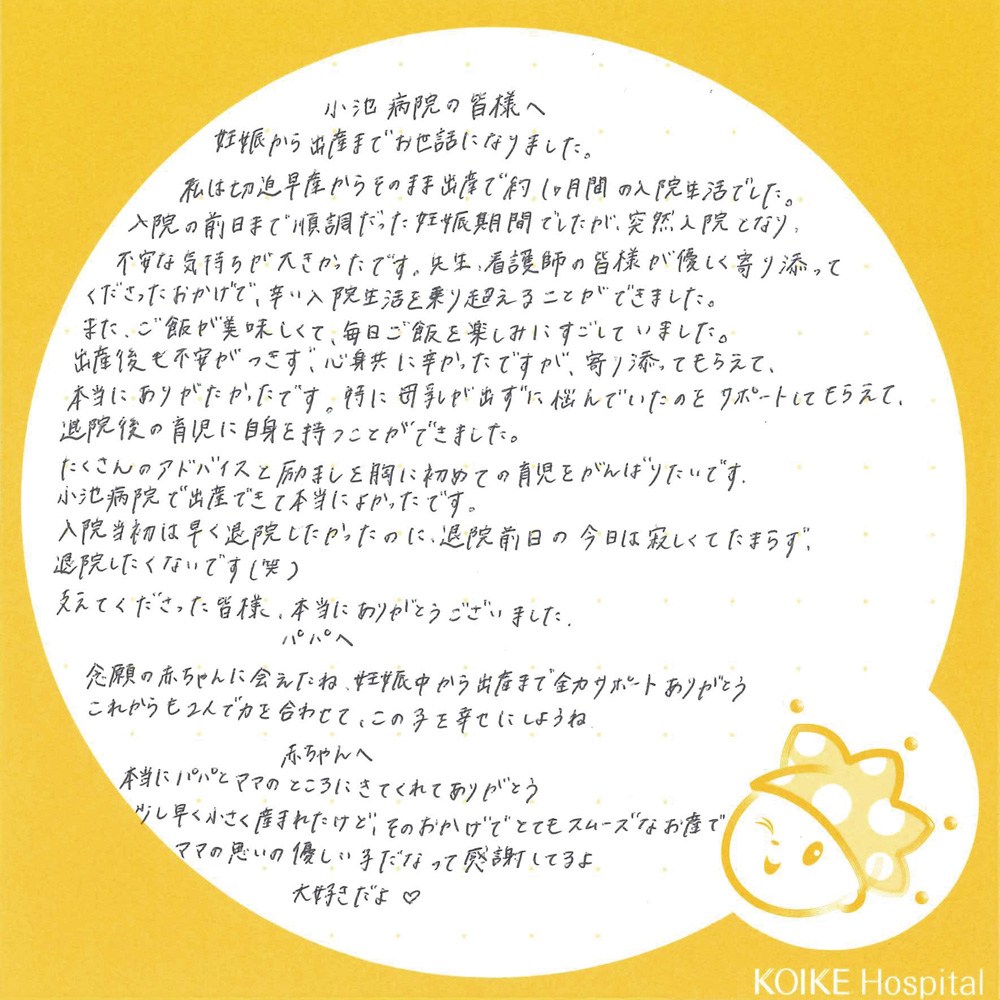 小池病院の皆様へ
妊娠から出産までお世話になりました。
私は切迫早産からそのまま出産で約1ヶ月間の入院生活でした。
入院の前日まで順調だった妊娠期間でしたが、突然入院となり、
不安な気持ちが大きかったです。先生、看護師の皆様が優しく寄り添って
くださったおかげで、辛い入院生活を乗り超えることができました。
また、ご飯が美味しくて、毎日ご飯を楽しみにすごしていました。
出産後も不安がつきず、心身共に辛かったですが、寄り添ってもらえて、
本当にありがたかったです。特に母乳が出ずに悩んでいたのをサポートしてもらえて、
退院後の育児に自身を持つことができました。
たくさんのアドバイスと励ましを胸に初めての育児をがんばりたいです.
小池病院で出産できて本当によかったです。
入院当初は早く退院したかったのに、退院前日の今日は寂しくてたまらず、
退院したくないです(笑)
支えてくださった皆様、本当にありがとうございました.
パパへ
念願の赤ちゃんに会えたね、妊娠中から出産まで全力サポートありがとう
これからも2人で力を合わせて、この子を幸せにしようね
赤ちゃんへ
本当にパパとママのところにきてくれてありがとう
少し早く小さく産まれたけど、そのおかげでとてもスムーズなお産で
ママの思いの優しい子だなって感謝してるよ
大好きだよ♡
KOIKE Hospital